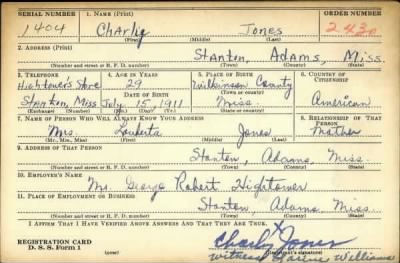 SERIAL NUMBER 1. NAME (Print) ORDER NUMBER
1404 Charlie Jones 2430
(First) (Middle) (Last)
2. ADDRESS (Print)
Stanton, Adams, Miss.
(Number and street or R. F. D. number) (Town) (County) (State)
3. TELEPHONE 4. AGE IN YEARS 5. PLACE OF BIRTH 6. COUNTRY OF CITIZENSHIP
Hightower's Store 29 Wilkinson County
DATE OF BIRTH (Town or county)
Stanton, Miss July 15, 1911 Miss. American
(Exchange) (Number) (Mo.) (Day) (Yr.) (State or country)
7. NAME OF PERSON WHO WILL ALWAYS KNOW YOUR ADDRESS 8. RELATIONSHIP OF THAT PERSON
Mrs. Jones Mother
(Mr., Mrs., Miss) (First) (Middle) (Last)
9. ADDRESS OF THAT PERSON
Stanton, Adams, Miss.
(Number and street or R. F. D. number) (Town) (County) (State)
10. EMPLOYER'S NAME
Mr. George Robert Hightower
11. PLACE OF EMPLOYMENT OR BUSINESS
Stanton, Adams, Miss.
(Number and street or R. F. D. number) (Town) (County) (State)
I AFFIRM THAT I HAVE VERIFIED ABOVE ANSWERS AND THAT THEY ARE TRUE.
REGISTRATION CARD
D. S. S. Form 1 (over) Charlie X Jones
(Registrant's signature)
Witness Williams